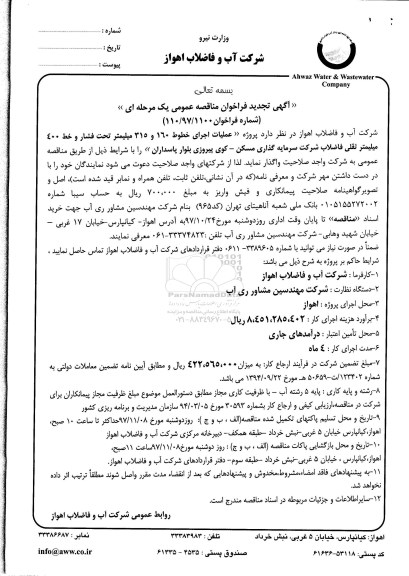 وزارت نیرو
شرکت آب و فاضلاب اهواز
شماره :
تاریخ :
پیوست :
Ahwaz Water & Wastewater
Company
بسمه تعالی
« آگهی تجدید فراخوان مناقصه عمومی یک مرحله ای »
(شماره فراخوان ۱۱۰/۹۷/۱۱۰۰)
شرکت آب و فاضلاب اهواز در نظر دارد پروژه « عملیات اجرای خطوط ۱۶۰ و ۳۱۵ میلیمتر تحت فشار و خط ۴۰۰
میلیمتر ثقلی فاضلاب شرکت سرمایه گذاری مسکن - کوی پیروزی بلوار پاسداران » را با شرایط ذیل از طریق مناقصه
عمومی به شرکت واجد صلاحیت واگذار نماید. لذا از شرکتهای واجد صلاحیت دعوت می شود نمایندگان خود را با
در دست داشتن مهر شرکت و معرفی نامه(که در آن نشانی،تلفن ثابت، تلفن همراه و نمابر قید شده است)، اصل و
تصویرگواهینامه صلاحیت پیمانکاری و فیش واریز به مبلغ ۷۰۰,۰۰۰ ریال به حساب سیبا شماره
۰۱۰۵۱۵۵۲۷۲۰۰۲ بانک ملی شعبه آناهیتای تهران (کد۹۶۵) بنام شرکت مهندسین مشاور ری آب جهت خرید
اسناد «مناقصه» تا پایان وقت اداری روزدوشنبه مورخ۹۷/۱۰/۲۴به آدرس اهواز- کیانپارس-خیابان ۱۷ غربی -
خیابان شهید وهابی- شرکت مهندسین مشاور ری آب تلفن :۳۳۳۷۴۸۲۳-۰۶۱ معرفی نمایند.
ضمناً در صورت نیاز می توانید با شماره ۳۳۸۹۶۰۵-۰۶۱۱ دفتر قراردادهای شرکت آب و فاضلاب اهواز تماس حاصل نمایید .
شرایط حاکم بر پروژه به شرح ذیل می باشد:
۱-کارفرما : شرکت آب و فاضلاب اهواز
۲-دستگاه نظارت : شرکت مهندسین مشاور ری آب
۳-محل اجرای پروژه : اهواز
۴-برآورد هزینه اجرای کار : ۸،۴۵۱،۲۸۵،۴۰۲ ریال
۵-محل تأمین اعتبار : درآمدهای جاری
۶-مدت اجرای کار : ۴ ماه
۷-مبلغ تضمین شرکت در فرآیند ارجاع کار: به میزان ۴۲۲،۵۶۵،۰۰۰ ریال و مطابق آیین نامه تضمین معاملات دولتی به
شماره ۱۲۳۴۰۲/ت۵۰۶۵۹ هـ مورخ ۱۳۹۴/۰۹/۲۲ می باشد.
۸-رشته و پایه کاری : پایه ۵ رشته آب - با ظرفیت کاری مجاز مطابق دستورالعمل موضوع مبلغ ظرفیت مجاز پیمانکاران برای
شرکت در مناقصه،ارزیابی کیفی و ارجاع کار بشماره ۳۰۵۹۳ مورخ ۹۴/۰۳/۰۵ سازمان مدیریت و برنامه ریزی کشور
۹-تاریخ و محل تسلیم پاکتهای تکمیل شده مناقصه(الف ، ب و ج ): روزدوشنبه مورخ ۹۷/۱۱/۰۸حداکثر تا ساعت ۱۰ صبح،
اهواز،کیانپارس خیابان ۵ غربی-نبش خرداد -طبقه همکف- دبیرخانه مرکزی شرکت آب و فاضلاب اهواز
۱۰-تاریخ و محل بازگشایی پاکات مناقصه (الف ، ب و ج) : روز دوشنبه مورخ۹۷/۱۱/۰۸ساعت ۱۱صبح،
اهواز،کیانپارس ، خیابان ۵ غربی-نبش خرداد -طبقه سوم- دفتر قراردادهای شرکت آب و فاضلاب اهواز.
۱۱-به پیشنهادهای فاقد امضاء،مشروط،مخدوش و پیشنهادهایی که بعد از انقضاء مدت مقرر واصل شوند مطلقاً ترتیب اثر داده
نخواهد شد.
۱۲-سایراطلاعات و جزئیات مربوطه در اسناد مناقصه مندرج است.
روابط عمومی شرکت آب و فاضلاب اهواز
اهواز: کیانپارس، خیابان ۵ غربی، نبش خرداد
تلفن : ۳۳۳۸۳۹۸۳
نمابر : ۳۳۳۸۶۶۸۷
کد پستی: ۵۳۱۱۸-۶۱۶۳۶
صندوق پستی: ۴۵۳۵ - ۶۱۳۳۵
info@aww.co.ir